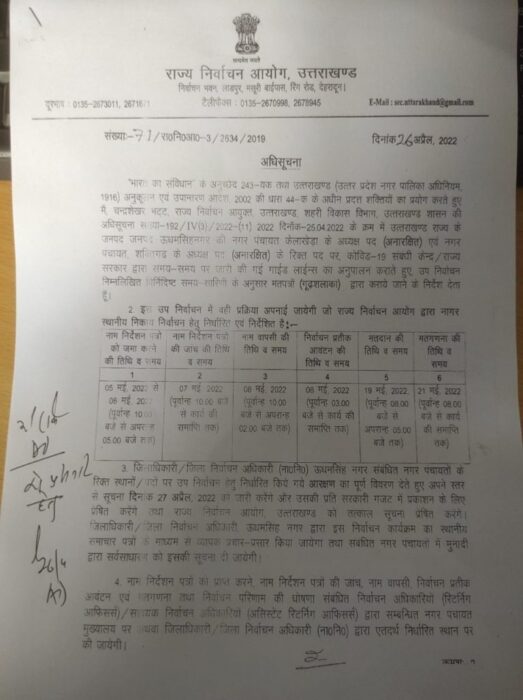 सत्यमेव जयते
राज्य निर्वाचन आयोग, उत्तराखण्ड
निर्वाचन भवन, लाडपुर, मसूरी बाईपास, रिंग रोड, देहरादून।
दूरभाष : 0135-2673011, 267167 टैलीफैक्स : 0135-2670998, 2678945 E-Mail : sec.uttarakhand@gmail.com
संख्या:-71/रा०नि०आ०-3/2634/2019 दिनांक 26 अप्रैल, 2022
अधिसूचना
"भारत का संविधान" के अनुच्छेद 243-यक तथा उत्तराखण्ड (उत्तर प्रदेश नगर पालिका अधिनियम,
1916) अनुकूलन एवं उपान्तरण आदेश, 2002 की धारा 44-क के अधीन प्रदत्त शक्तियों का प्रयोग करते हुए
मैं, चन्द्रशेखर भटट, राज्य निर्वाचन आयुक्त, उत्तराखण्ड शहरी विकास विभाग, उत्तराखण्ड शासन की
अधिसूचना संख्या-192/IV(3)/2022-(11) 2022 दिनांक-25.04.2022 के क्रम में उत्तराखण्ड राज्य के
जनपद जनपद ऊधमसिंहनगर की नगर पंचायत केलाखेड़ा के अध्यक्ष पद (अनारक्षित) एवं नगर
पंचायत, शक्तिगढ़ के अध्यक्ष पद (अनारक्षित) के रिक्त पद पर, कोविड-19 संबंधी केन्द्र/राज्य
सरकार द्वारा समय-समय पर जारी की गई गाईड लाईन्स का अनुपालन कराते हुए, उप निर्वाचन
निम्नलिखित विनिर्दिष्ट समय-सारिणी के अनुसार मतपत्रों (गूढ़शलाका) द्वारा कराये जाने के निर्देश देता
हूँ।
2. इस उप निर्वाचन में वही प्रक्रिया अपनाई जायेगी जो राज्य निर्वाचन आयोग द्वारा नागर
स्थानीय निकाय निर्वाचन हेतु निर्धारित एवं निर्देशित है:-
नाम निर्देशन पत्रों को जमा करने की तिथि व समय | नाम निर्देशन पत्रों की जांच की तिथि व समय | नाम वापसी की तिथि व समय | निर्वाचन प्रतीक आवंटन की तिथि व समय | मतदान की तिथि व समय | मतगणना की तिथि व समय
1 2 3 4 5 6
05 मई, 2022 से 06 मई, 2022 (पूर्वान्ह 10.00 बजे से अपरान्ह 05.00 बजे तक) | 07 मई, 2022 (पूर्वान्ह 10.00 बजे से कार्य की समाप्ति तक) | 08 मई, 2022 (पूर्वान्ह 10.00 बजे से अपरान्ह 02.00 बजे तक) | 08 मई, 2022 (अपरान्ह 03.00 बजे से कार्य की समाप्ति तक) | 19 मई, 2022 (पूर्वान्ह 08.00 बजे से अपरान्ह 05.00 बजे तक) | 21 मई, 2022 (पूर्वान्ह 08.00 बजे से कार्य की समाप्ति तक)
3. जिलाधिकारी/जिला निर्वाचन अधिकारी (ना०नि०) ऊधमसिंह नगर संबंधित नगर पंचायतों के
रिक्त स्थानों/पदों पर उप निर्वाचन हेतु निर्धारित किये गये आरक्षण का पूर्ण विवरण देते हुए अपने स्तर
से सूचना दिनांक 27 अप्रैल, 2022 को जारी करेंगे और उसकी प्रति सरकारी गजट में प्रकाशन के लिए
प्रेषित करेंगे तथा राज्य निर्वाचन आयोग, उत्तराखण्ड को तत्काल सूचना प्रेषित करेंगे।
जिलाधिकारी/जिला निर्वाचन अधिकारी, ऊधमसिंह नगर द्वारा इस निर्वाचन कार्यक्रम का स्थानीय
समाचार पत्रों के माध्यम से व्यापक प्रचार-प्रसार किया जायेगा तथा संबंधित नगर पंचायतों में मुनादी
द्वारा सर्वसाधारण को इसकी सूचना दी जायेगी।
4. नाम निर्देशन पत्रों को प्राप्त करने, नाम निर्देशन पत्रों की जांच, नाम वापसी, निर्वाचन प्रतीक
आवंटन एवं मतगणना तथा निर्वाचन परिणाम की घोषणा संबंधित निर्वाचन अधिकारियों (रिटर्निंग
आफिसर्स)/सहायक निर्वाचन अधिकारियों (असिस्टेंट रिटर्निंग आफिसर्स) द्वारा सम्बन्धित नगर पंचायत
मुख्यालय पर अथवा जिलाधिकारी/जिला निर्वाचन अधिकारी (ना०नि०) द्वारा एतदर्थ निर्धारित स्थान पर
की जायेगी।
2